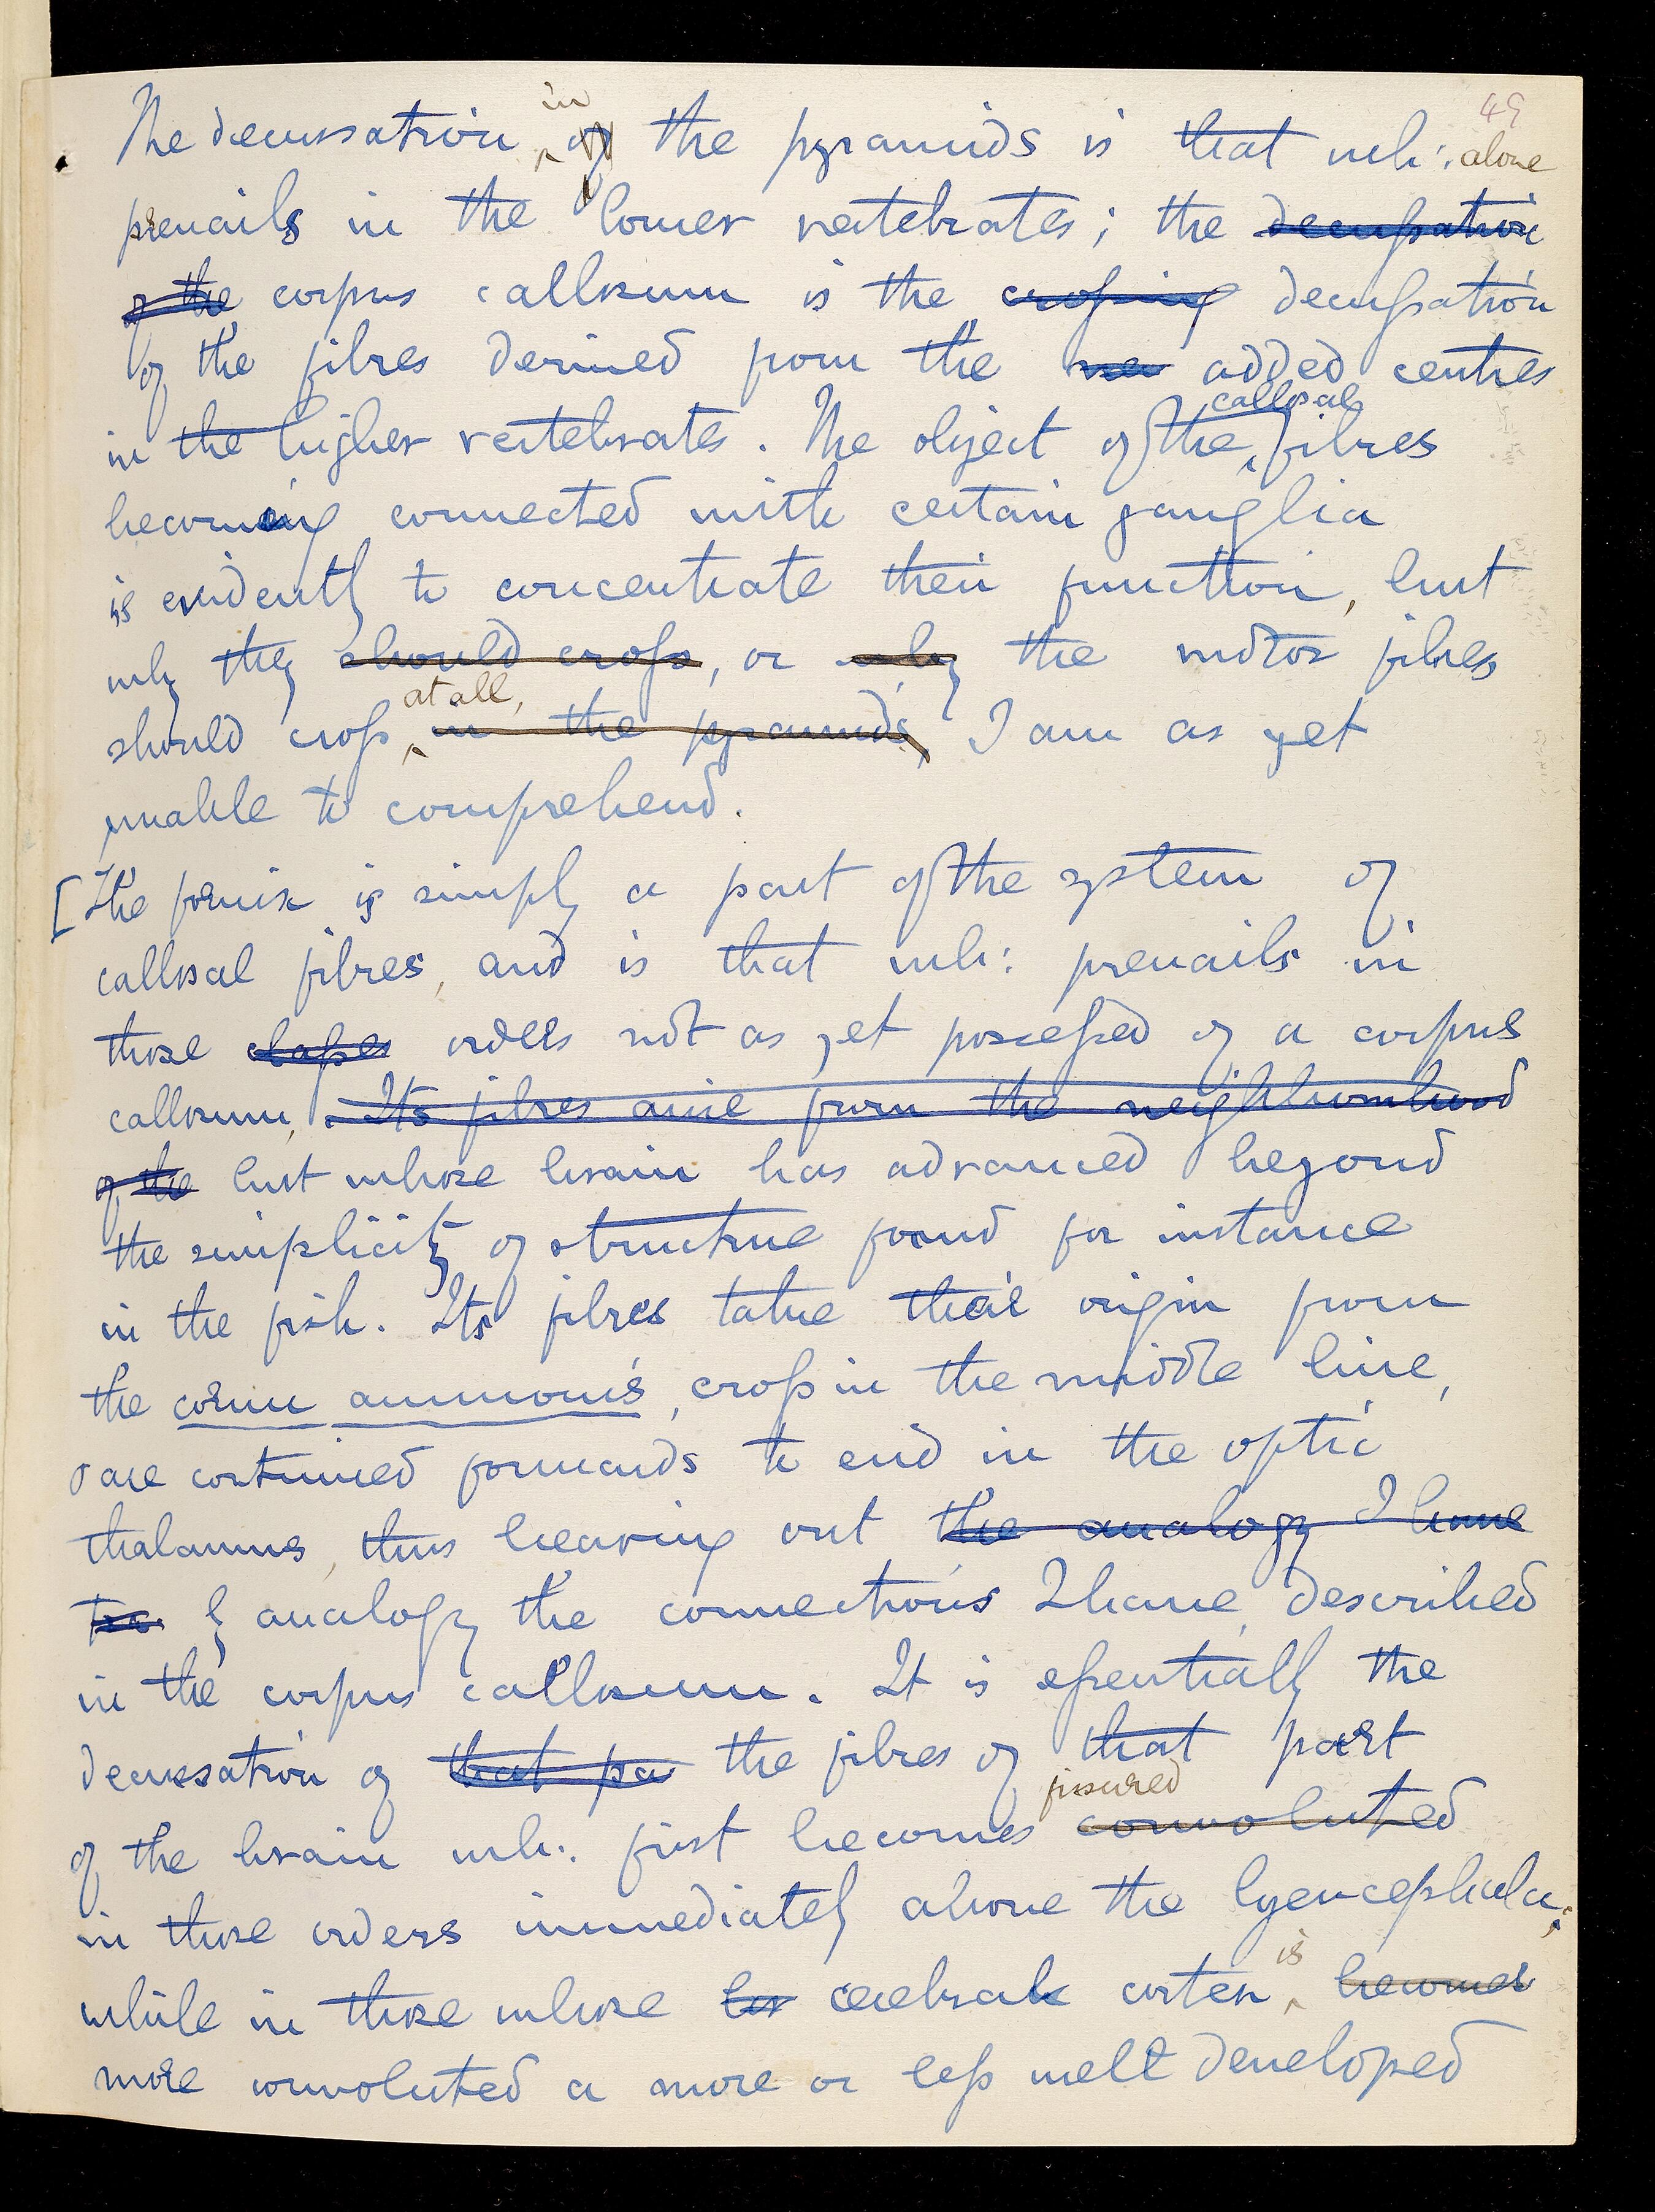 49
The decussation in of the pyramids is that wh: alone
prevails in the lower vertebrates; the decussation
of the corpus callosum is the crossing decussation
of the fibres derived from the new added centres
in the higher vertebrates. The object of the callosal fibres
becoming connected with certain ganglia
is evidently to concentrate their function, but
why they should cross, or why the motor fibres
should cross at all, in the pyramids, I am as yet
unable to comprehend.
[The fornix is simply a part of the system of
callosal fibres, and is that wh: prevails in
those classes orders not as yet possessed of a corpus
callosum, . Its fibres arise from the neighbourhood
of the but whose brain has advanced beyond
the simplicity of structure found for instance
in the fish. Its fibres take their origin from
the cornu ammonis, cross in the middle line,
& are continued forwards to end in the optic
thalamus, thus bearing out the analogy I have
by analogy the connections I have described
in the corpus callosum. It is essentially the
decussation of that pa the fibres of that part
of the brain wh: first becomes fissured convoluted
in those orders immediately above the lyencephala;
while in those whose cerebral cortex is becomes
more convoluted a more or less well developed